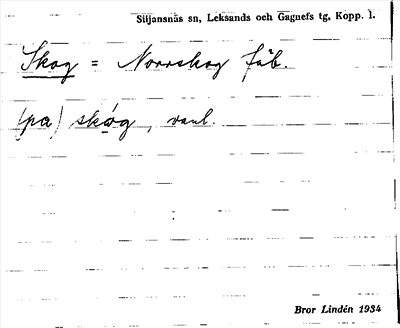 Siljansnäs sn, Leksands och Gagnefs tg, Kopp. l.
Skog = Norrskog fäb.
(pa) skóg, vanl.
Bror Lindén 1934